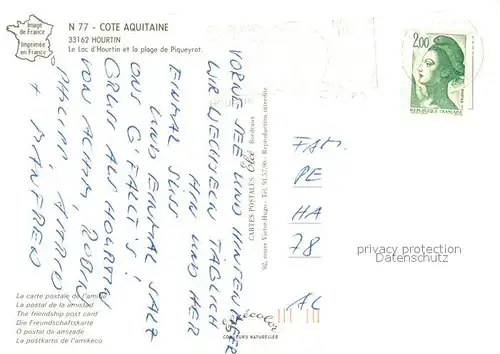 Image
de France
Imprimée
en France
N 77 - COTE AQUITAINE
33162 HOURTIN
Le Lac d'Hourtin et la plage de Piqueyrot.
2,00
REPUBLIQUE FRANÇAISE
VORNE SEE UND HINTEN MEER
WIR WECHSELN TÄGLICH
HIN UND HER
EINMAL SÜSS
UND EINMAL SALZ
UNS G'FALLT'S!
GRUSS AUS HOURTIN
VON ACHIM, ROBIN
PHILIPP, ASTRID
+ MANFRED
CARTES POSTALES Bordeaux
92, cours Victor-Hugo - Tél. 91.57.06 - Reproduction interdite
FAM.
PE
HA
78
AL
privacy protection
Datenschutz
COULEURS NATURELLES
La carte postale de l'amitié
La postal de la amistad
The friendship post card
Die Freundschaftskarte
O postal da amizade
La postkarto de l'amikeco